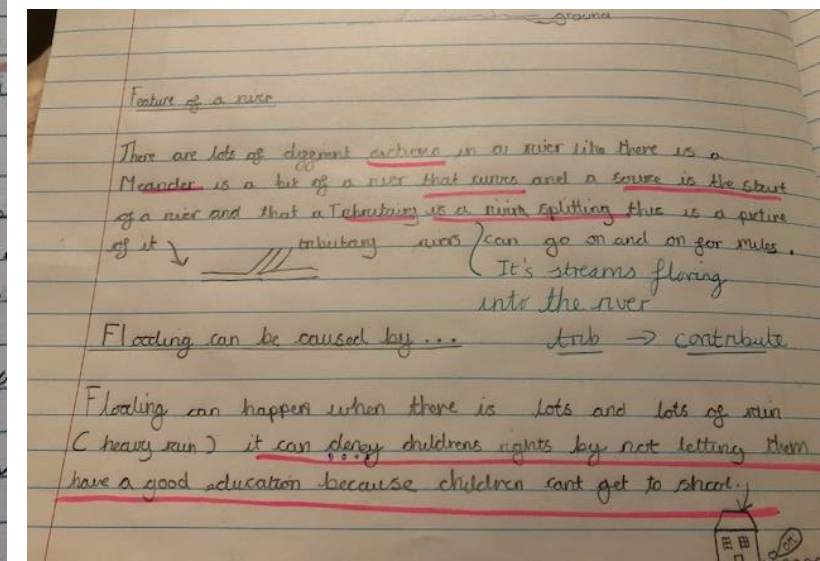 ground
Feature of a river
There are lots of different in a river like there is a
Meander is a bit of a river that curves and a sourse is the start
of a river and that a Tributairy is a river splitting this is a picture
of it tributary rivers can go on and on for miles.
It's streams flowing
into the river
Flooding can be caused by...
trib → contribute
Flooding can happen when there is lots and lots of rain
(heavy rain) it can deney childrens rights by not letting them
have a good education because children cant get to shcool.